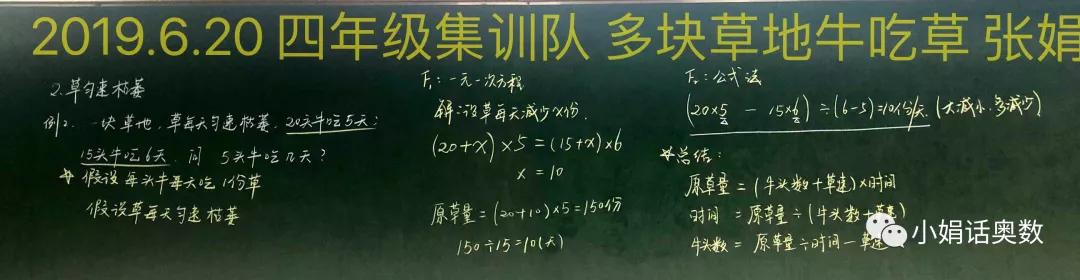 2019.6.20 四年级集训队 多块草地牛吃草 张娟
2.草匀速枯萎
例2. 一块草地,草每天匀速枯萎,20头牛吃5天;
15头牛吃6天. 问 5头牛吃几天?
☆ 假设每头牛每天吃1份草
假设草每天匀速枯萎
F₁:一元一次方程
解:设草每天减少x份.
(20+x)×5=(15+x)×6
x=10
原草量=(20+10)×5=150份
150÷15=10(天)
F₂:公式法
(20×5 - 15×6)÷(6-5)=10份/天.(大减小,多减少)
☆总结:
原草量=(牛头数+草速)×时间
时间 = 原草量÷(牛头数+草速)
牛头数 = 原草量÷时间-草速
小娟话奥数